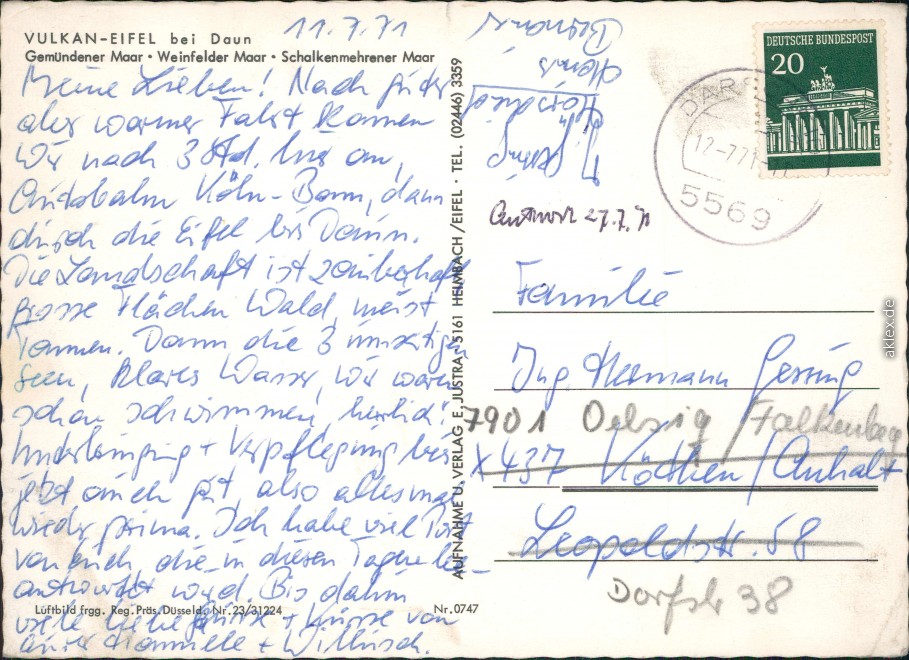 11.7.71
VULKAN-EIFEL bei Daun
Gemündener Maar • Weinfelder Maar • Schalkenmehrener Maar
Meine Lieben! Nach guter
aber warmer Fahrt kamen
wir nach 3 Std. hier an,
Autobahn Köln-Bonn, dann
durch die Eifel bis Daun.
Die Landschaft ist zauberhaft
grosse Flächen Wald, meist
Tannen. Dann die 3 umseitigen
Seen, klares Wasser, wir waren
schon schwimmen, herrlich!
Unterbringung + Verpflegung bis
jetzt auch gut, also alles mal
wieder prima. Ich habe viel Post
von euch, die in diesen Tagen be-
antwortet wird. Bis dahin
viele liebe Grüsse + Küsse von
eurer + Willusch.
Luftbild frgg. Reg. Präs. Düsseld. Nr. 23/31224
Nr. 0747
AUFNAHME U. VERLAG E. JUSTRA, 5161 HEIMBACH/EIFEL • TEL. (02446) 3359
DEUTSCHE BUNDESPOST
20
12.-7.71
5569
Antwort 27.7.71
Familie
Ing Hermann Gessing
7901 Oelsig / Falkenberg
X 437 Köthen / Anhalt
Leopoldstr. 58
Dorfstr 38
akleks.de